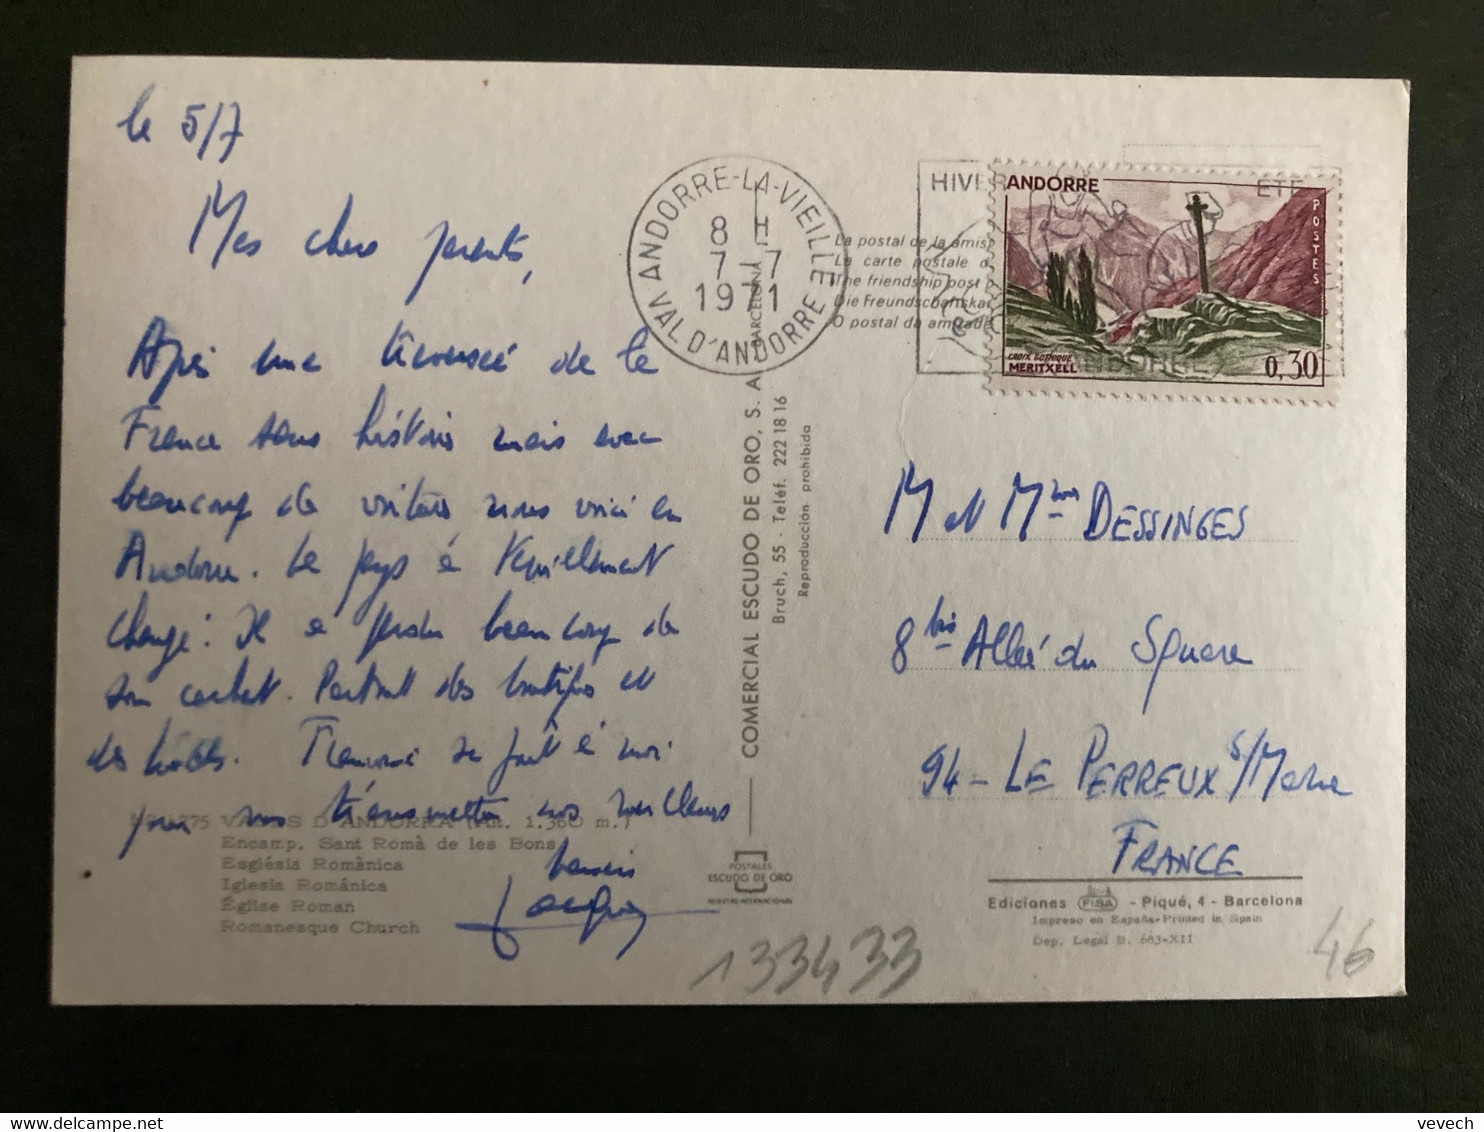 le 5/7
Mes chers parents,
Après une traversée de la
France sans histoire mais avec
beaucoup de voitures nous voici en
Andorre. Le pays a terriblement
changé : Il a perdu beaucoup de
son cachet. Partout des boutiques et
des hôtels. Françoise se joint à moi
pour vous transmettre nos meilleurs
baisers
Nº 1275 VALLS D'ANDORRA (Alt. 1.360 m.)
Encamp. Sant Romà de les Bons
Església Romànica
Iglesia Románica
Église Roman
Romanesque Church
COMERCIAL ESCUDO DE ORO, S. A.
BARCELONA
Bruch, 55 - Teléf. 222 18 16
Reproducción prohibida
POSTALES
ESCUDO DE ORO
ANDORRE-LA-VIEILLE
8 H
7-7
1971
VAL D'ANDORRE
La postal de la amis
La carte postale d
The friendship post
Die Freundschaftska
O postal da amizade
HIVER
ETE
ANDORRE
POSTES
CROIX GOTHIQUE
MERITXELL
0,30
M et Mme DESSINGES
8 bis Allée du Square
94 - LE PERREUX s/Marne
FRANCE
Ediciones FISA - Piqué, 4 - Barcelona
Impreso en España-Printed in Spain
Dep. Legal B. 683-XII
133433
46
vevech